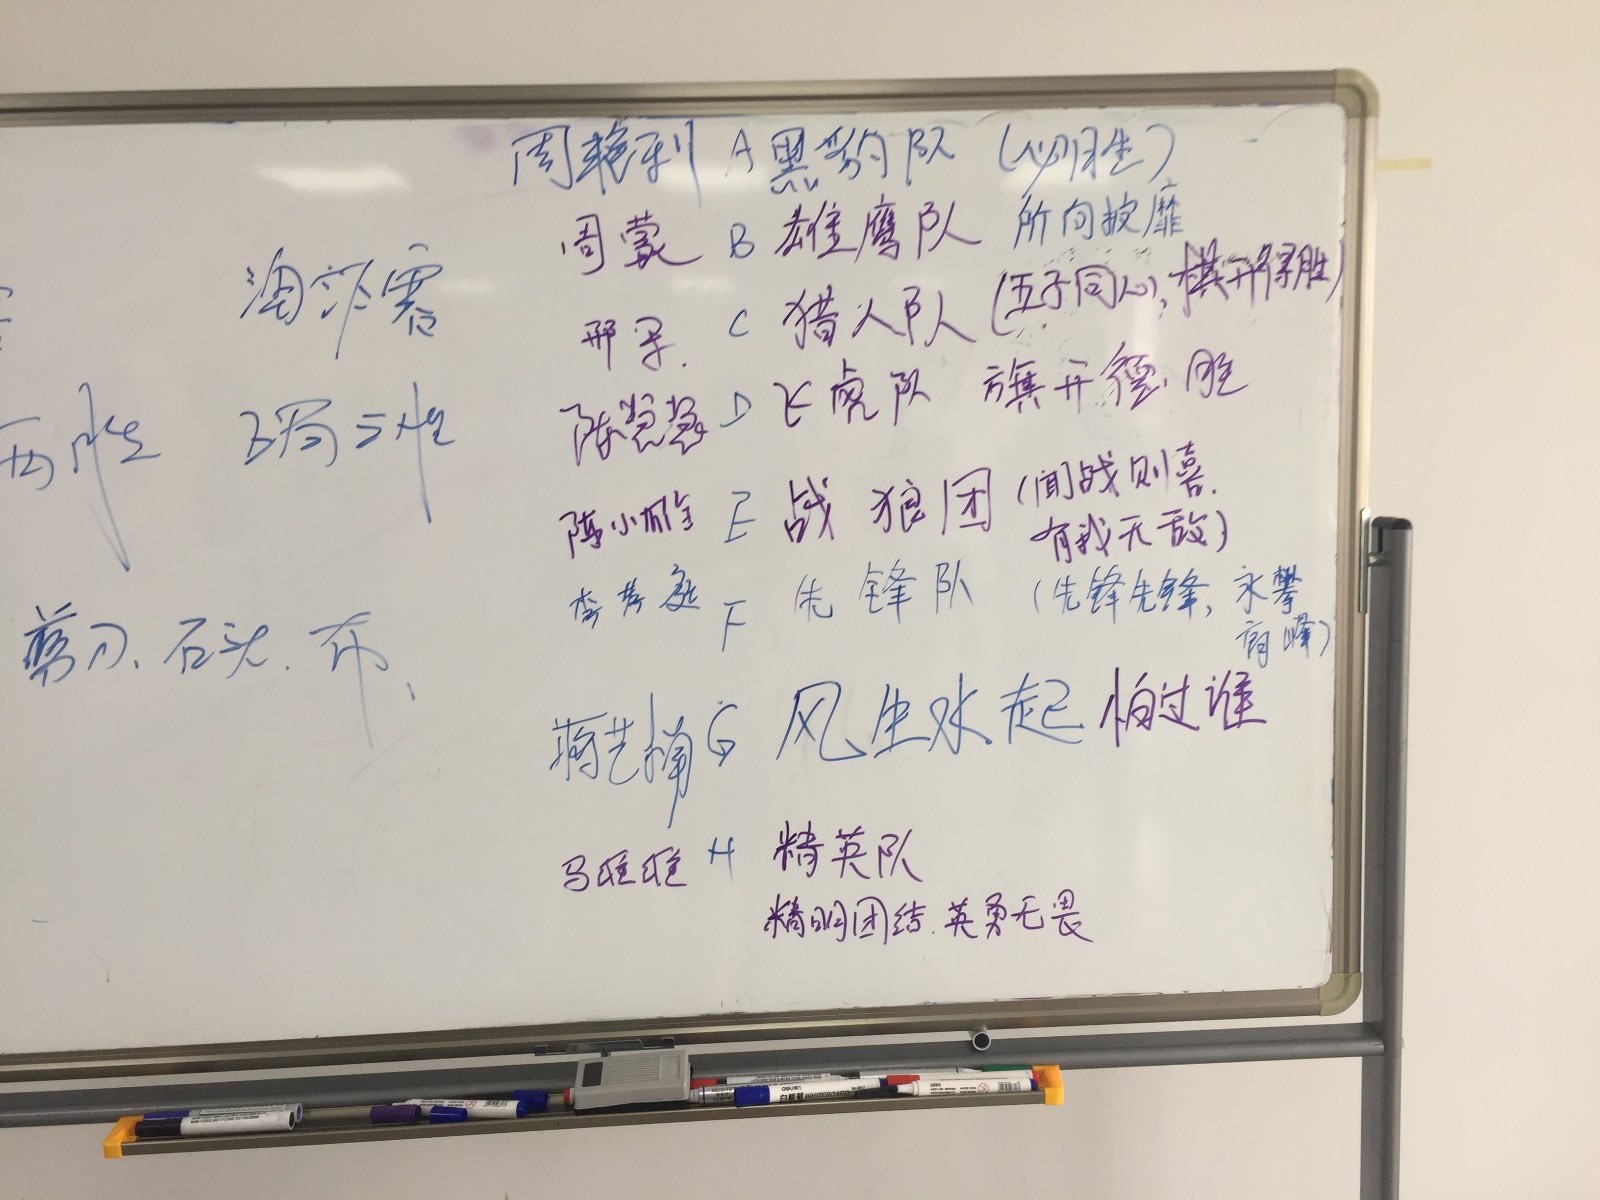 周艳利 A 黑豹队 (必胜)
周蒙 B 雄鹰队 所向披靡
邢 C 猎人队 (五子同心, 棋开得胜)
陈慧慧 D 飞虎队 旗开得胜
陈小雕 E 战狼团 (闻战则喜.
有我无敌)
F 先锋队 (先锋先锋, 永攀
高峰)
蒋艺楠 G 风生水起 怕过谁
马雅雅 H 精英队
精明团结. 英勇无畏
淘汰赛
两胜 三胜
剪刀、石头、布、
白板笔 WHITEBOARD